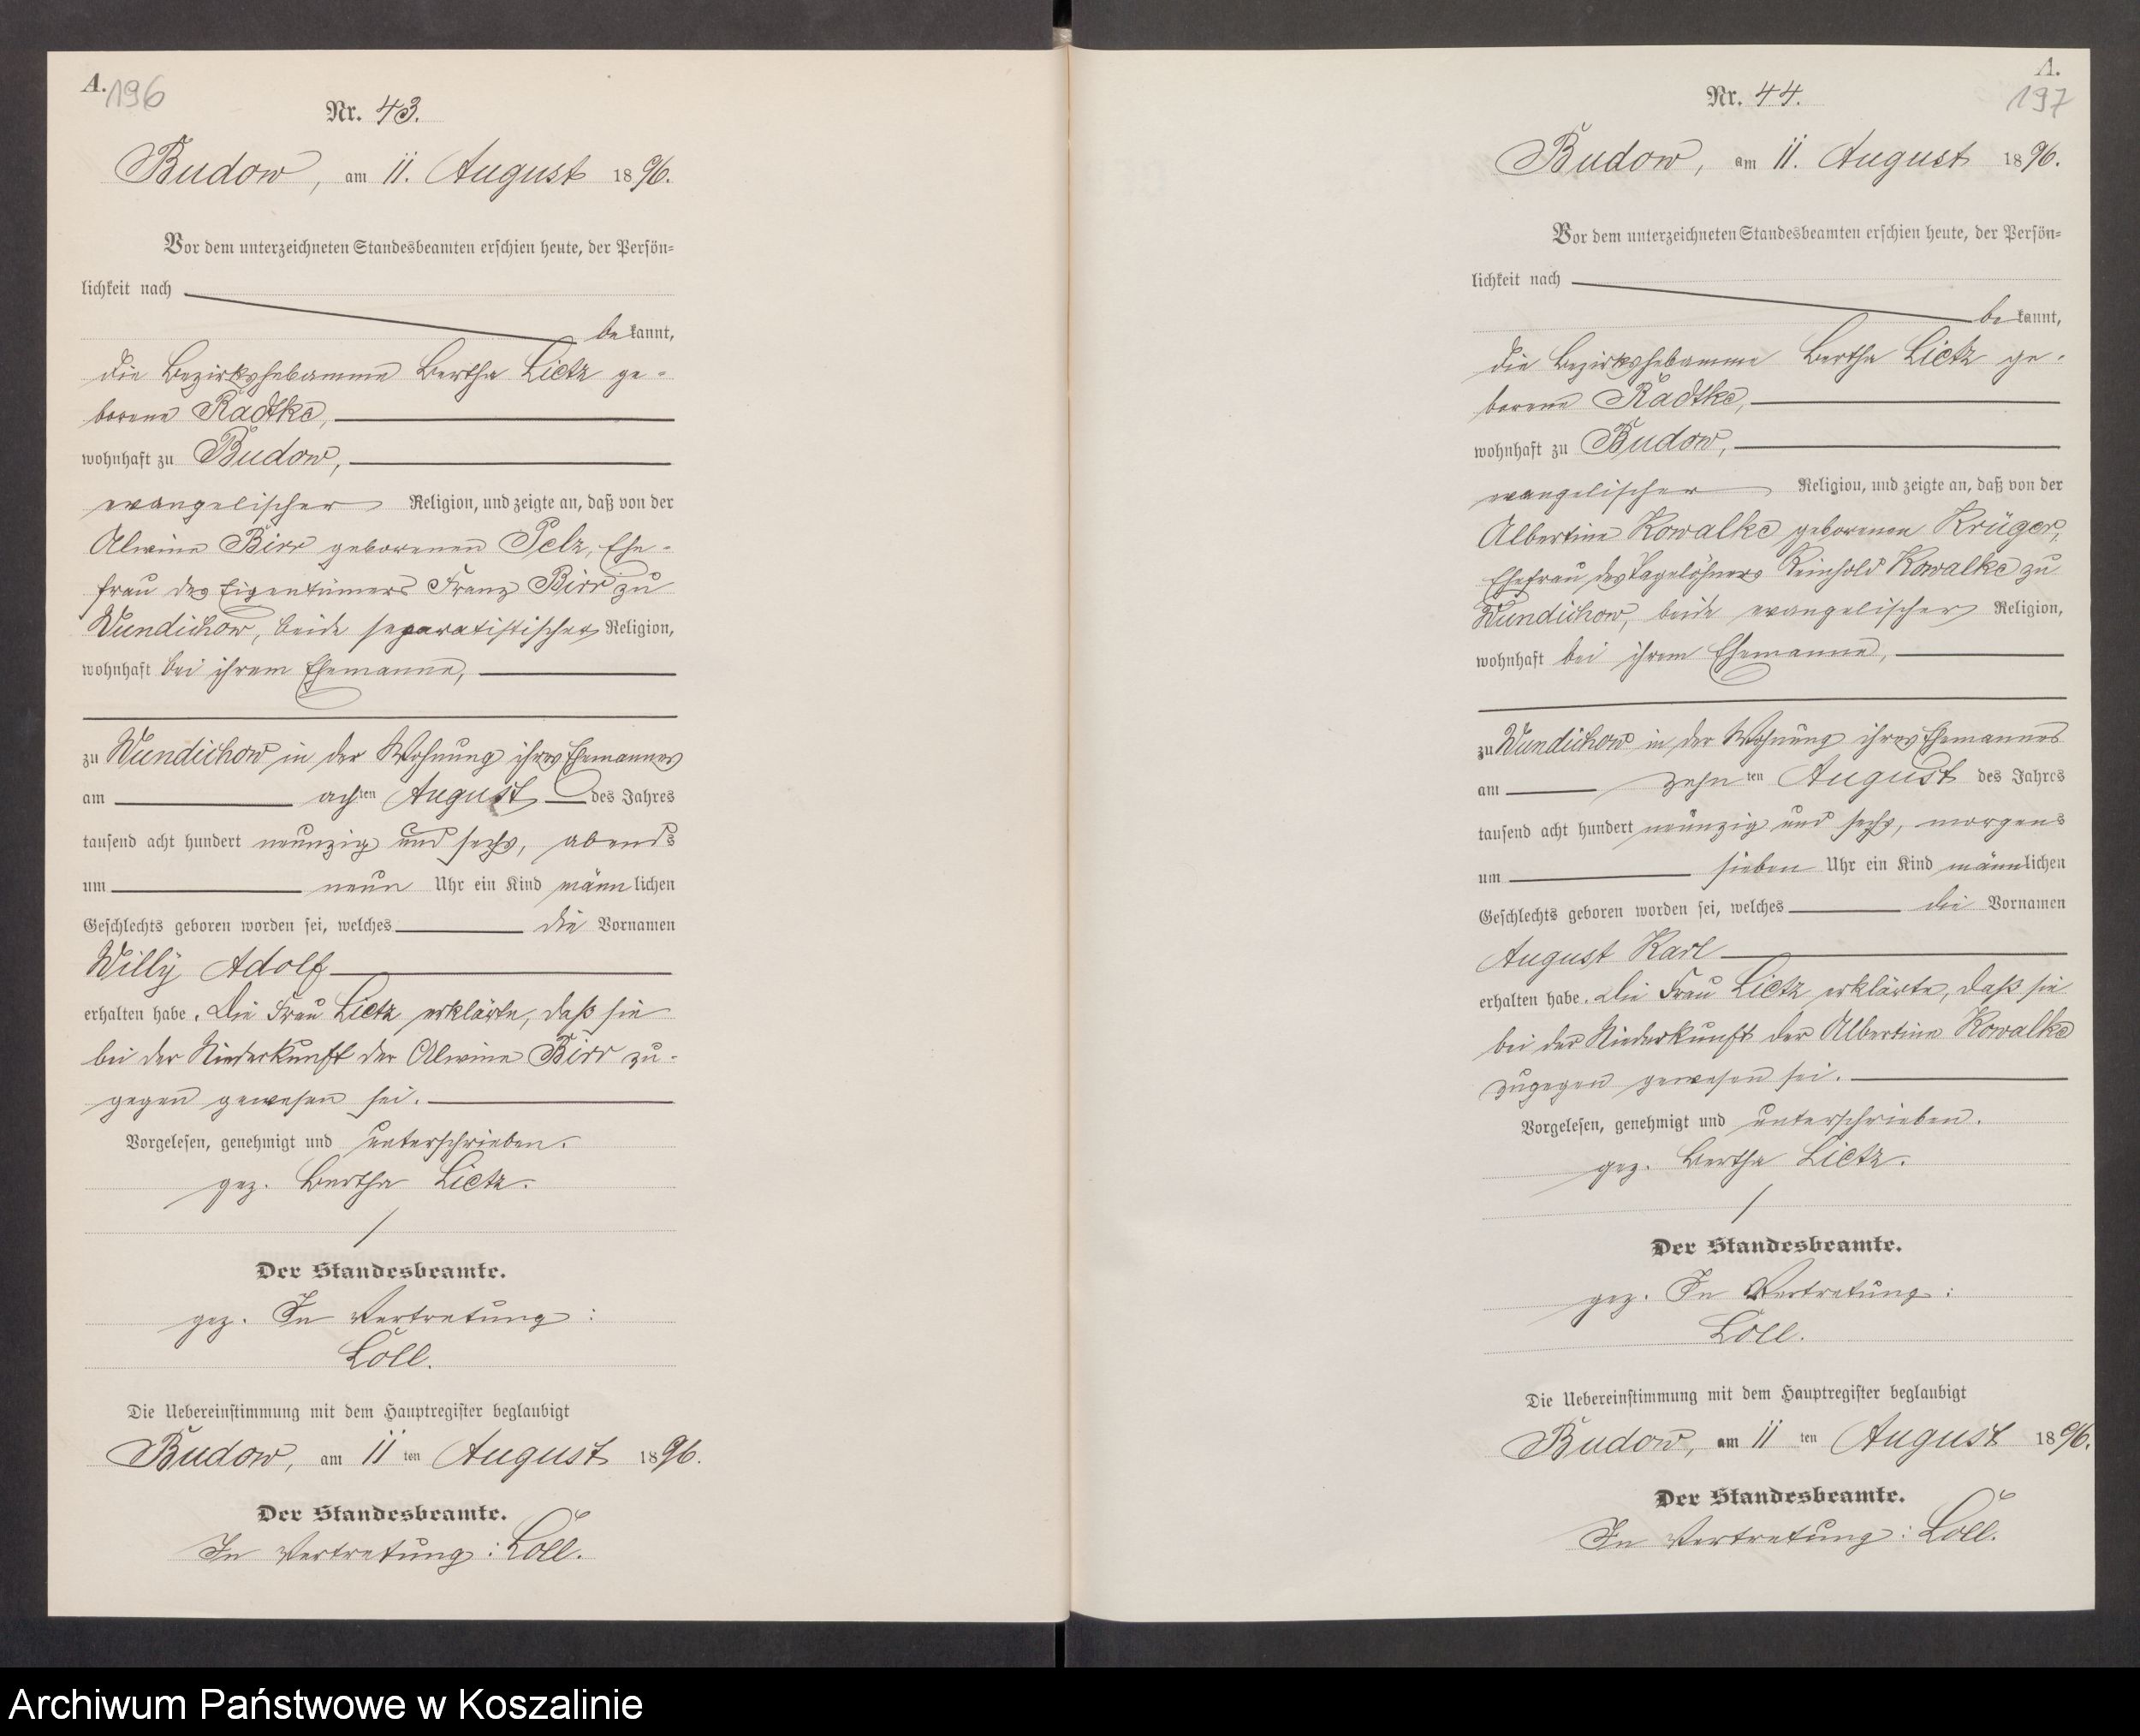 A. 196
Nr. 43.
Budow, am 11. August 1896.
Vor dem unterzeichneten Standesbeamten erschien heute, der Persön-
lichkeit nach
bekannt,
die Bezirkshebamme Bertha Lietz ge-
borene Radtke,
wohnhaft zu Budow,
evangelischer Religion, und zeigte an, daß von der
Alwine Birr geborenen Pelz, Ehe-
frau des Eigentümers Franz Birr zu
Wundichow, beide separatistischer Religion,
wohnhaft bei ihrem Ehemanne,
zu Wundichow in der Wohnung ihres Ehemannes
am achten August des Jahres
tausend acht hundert neunzig und sechs, abends
um neun Uhr ein Kind männlichen
Geschlechts geboren worden sei, welches die Vornamen
Willy Adolf
erhalten habe. Die Frau Lietz erklärte, daß sie
bei der Niederkunft der Alwine Birr zu-
gegen gewesen sei.
Vorgelesen, genehmigt und unterschrieben.
gez. Bertha Lietz.
Der Standesbeamte.
gez. In Vertretung:
Löll.
Die Uebereinstimmung mit dem Hauptregister beglaubigt
Budow, am 11ten August 1896.
Der Standesbeamte.
In Vertretung: Löll.
A.
197
Nr. 44.
Budow, am 11. August 1896.
Vor dem unterzeichneten Standesbeamten erschien heute, der Persön-
lichkeit nach
bekannt,
die Bezirkshebamme Bertha Lietz ge-
borene Radtke,
wohnhaft zu Budow,
evangelischer Religion, und zeigte an, daß von der
Albertine Kowalke geborenen Krüger,
Ehefrau des Tagelöhners Reinhold Kowalke zu
Wundichow, beide evangelischer Religion,
wohnhaft bei ihrem Ehemanne,
zu Wundichow in der Wohnung ihres Ehemannes
am zehnten August des Jahres
tausend acht hundert neunzig und sechs, morgens
um sieben Uhr ein Kind männlichen
Geschlechts geboren worden sei, welches die Vornamen
August Karl
erhalten habe. Die Frau Lietz erklärte, daß sie
bei der Niederkunft der Albertine Kowalke
zugegen gewesen sei.
Vorgelesen, genehmigt und unterschrieben.
gez. Bertha Lietz.
Der Standesbeamte.
gez. In Vertretung:
Löll.
Die Uebereinstimmung mit dem Hauptregister beglaubigt
Budow, am 11ten August 1896.
Der Standesbeamte.
In Vertretung: Löll.
Archiwum Państwowe w Koszalinie